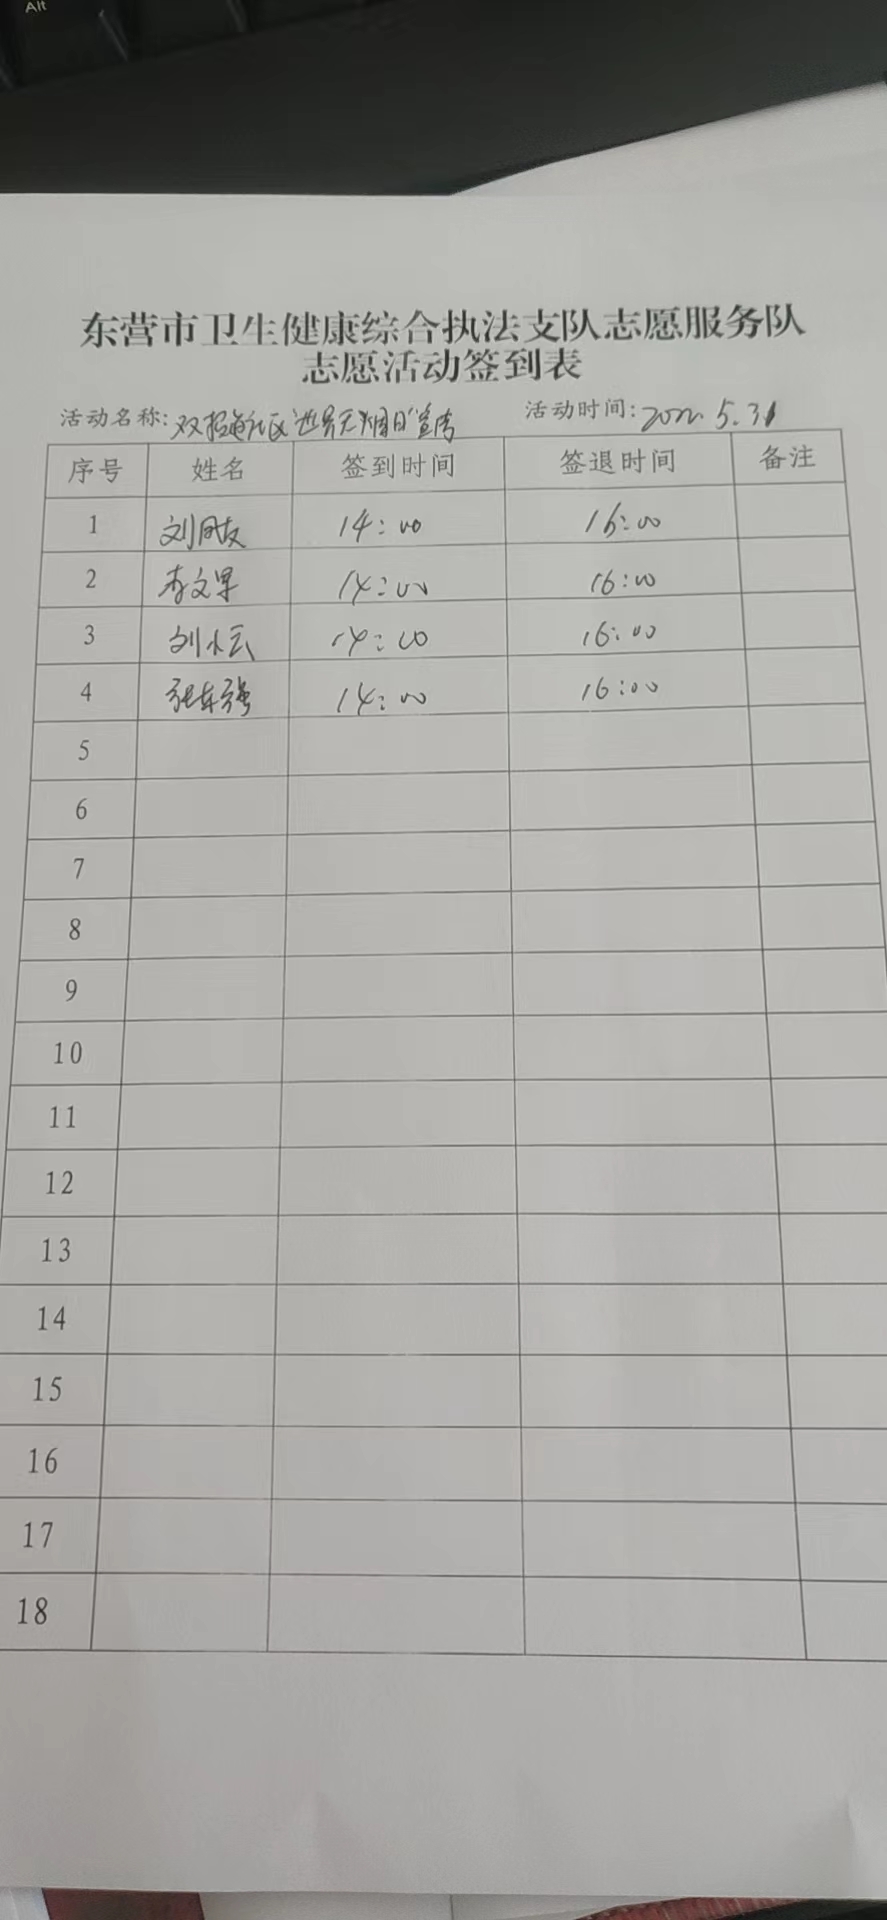 Alt
东营市卫生健康综合执法支队志愿服务队
志愿活动签到表
活动名称: 双报到社区"世界无烟日"宣传 活动时间: 2022.5.31
序号 姓名 签到时间 签退时间 备注
1 14:00 16:00
2 李文军 14:00 16:00
3 刘小云 14:00 16:00
4 张东强 14:00 16:00
5
6
7
8
9
10
11
12
13
14
15
16
17
18